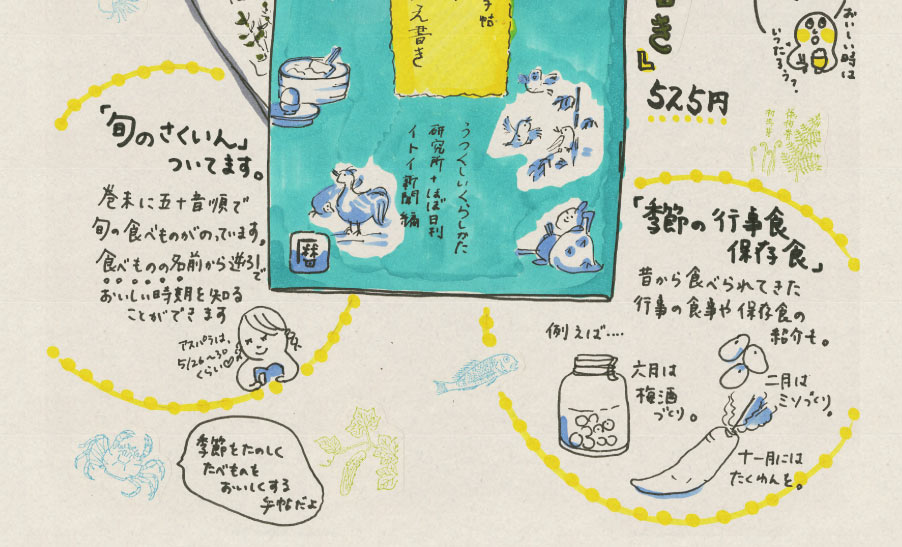 手帖
え書き
き』
525円
おいしい時は
いつだろう?
うつくしいくらしかた
研究所＋ほぼ日刊
イトイ新聞 編
暦
「旬のさくいん」
ついてます。
巻末に五十音順で
旬の食べものがのっています。
食べものの名前から逆引きで
おいしい時期を知る
ことができます
アスパラは、
5/26〜30
くらい
季節をたのしく
たべものを
おいしくする
手帖だよ
「季節の行事食
保存食」
昔から食べられてきた
行事の食事や保存食の
紹介も。
例えば‥‥
六月は
梅酒
づくり。
二月は
ミソづくり。
十一月には
たくわんを。